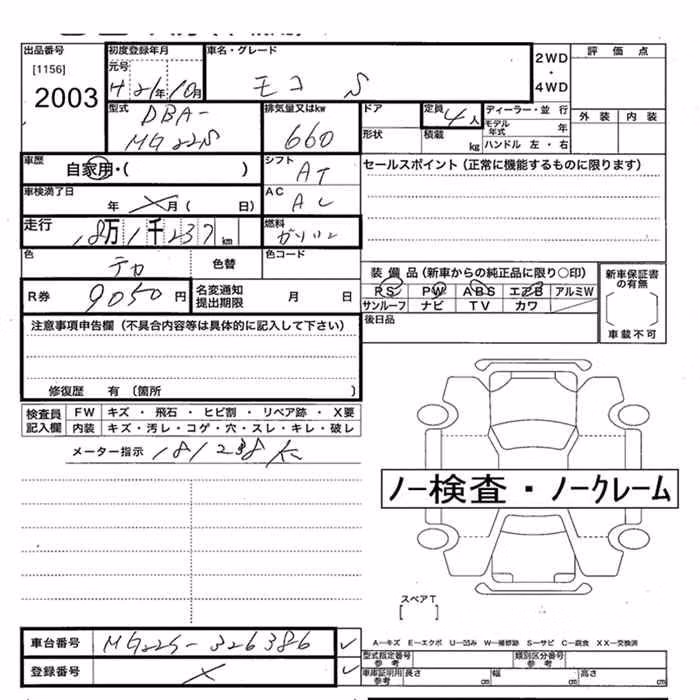 出品番号 初度登録年月 車名・グレード 評価点
[1156] 元号 2WD
2003 H21年10月 モコ S ・
4WD
型式 DBA- 排気量又はkw ドア 定員 4人 ディーラー・並行 外装 内装
MG22S 660 形状 積載 kg モデル年式 年
ハンドル 左・右
車歴 自家用・( ) シフト AT セールスポイント(正常に機能するものに限ります)
車検満了日 年 月( 日) AC AC
走行 18万1千237km 燃料 ガソリン
色 色替 色コード
装備品(新車からの純正品に限り○印) 新車保証書の有無
R券 9050円 名変通知提出期限 月 日 PS PW ABS エアB アルミW
サンルーフ ナビ TV カワ
注意事項申告欄(不具合内容等は具体的に記入して下さい) 後日品 車載不可
修復歴 有 (箇所 )
検査員記入欄 FW キズ・飛石・ヒビ割・リペア跡・X要
内装 キズ・汚レ・コゲ・穴・スレ・キレ・破レ
メーター指示 181238K
ノー検査・ノークレーム
スペアT
[ ]
車台番号 MG22S-326386 ✓ A−キズ E−エクボ U−凹み W−補修跡 S−サビ C−腐食 XX−交換済
登録番号 × ✓ 型式指定番号 参考 類別区分番号 参考
車庫証明用 参考 長さ cm 幅 cm 高さ cm